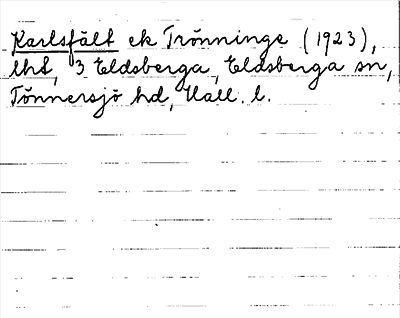 Karlsfält ek Trönninge (1923),
lht, 3 Eldsberga, Eldsberga sn,
Tönnersjö hd, Hall. l.